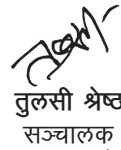 तुलसी श्रेष्ठ
सञ्चालक